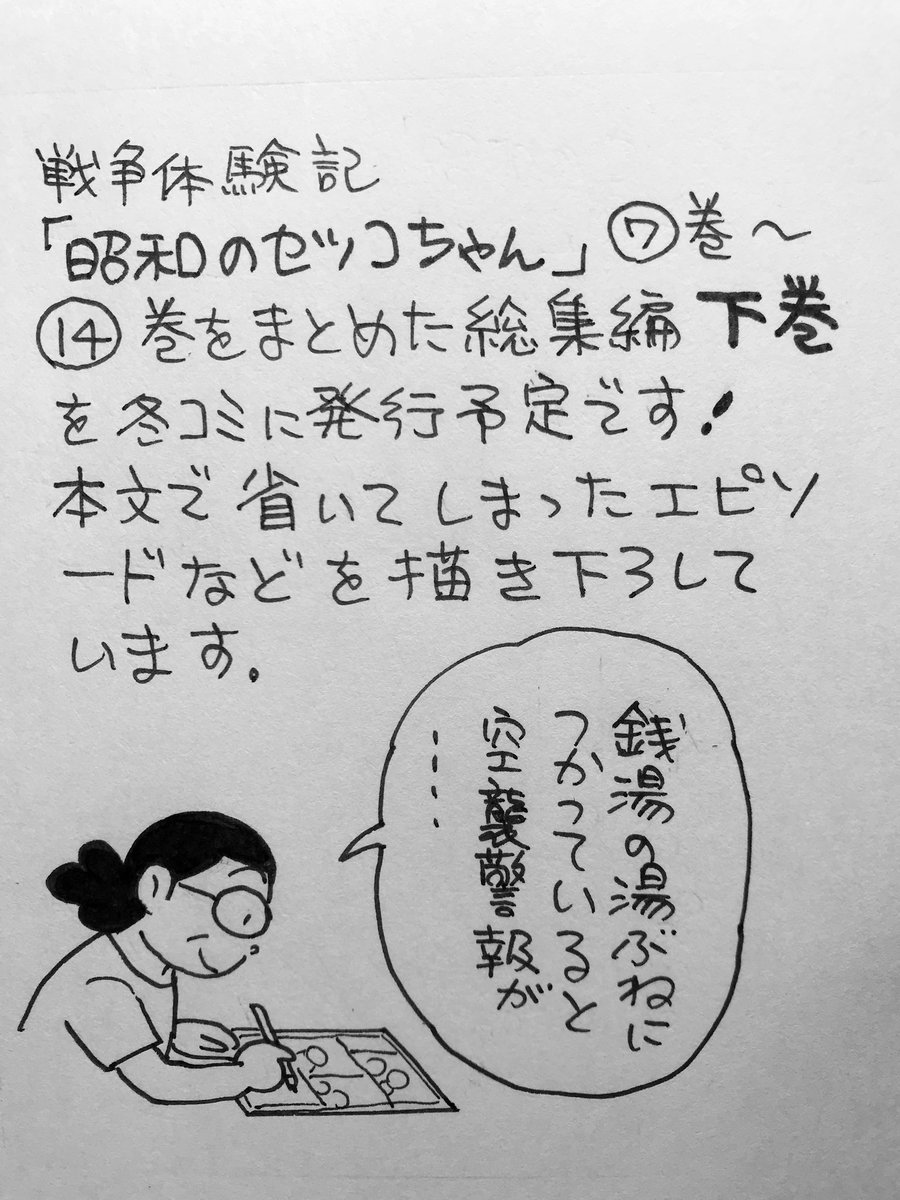 戦争体験記
「昭和のゼツコちゃん」⑦巻〜
⑭巻をまとめた総集編下巻
を冬コミに発行予定です!
本文で省いてしまったエピソ
ードなどを描き下ろして
います.
銭湯の湯ぶねに
つかっていると
空襲警報が
・・・・